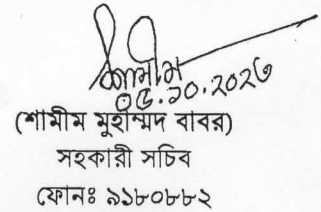 শামীম
০৫.১০.২০২৩
(শামীম মুহাম্মদ বাবর)
সহকারী সচিব
ফোনঃ ৯১৮০৮৮২